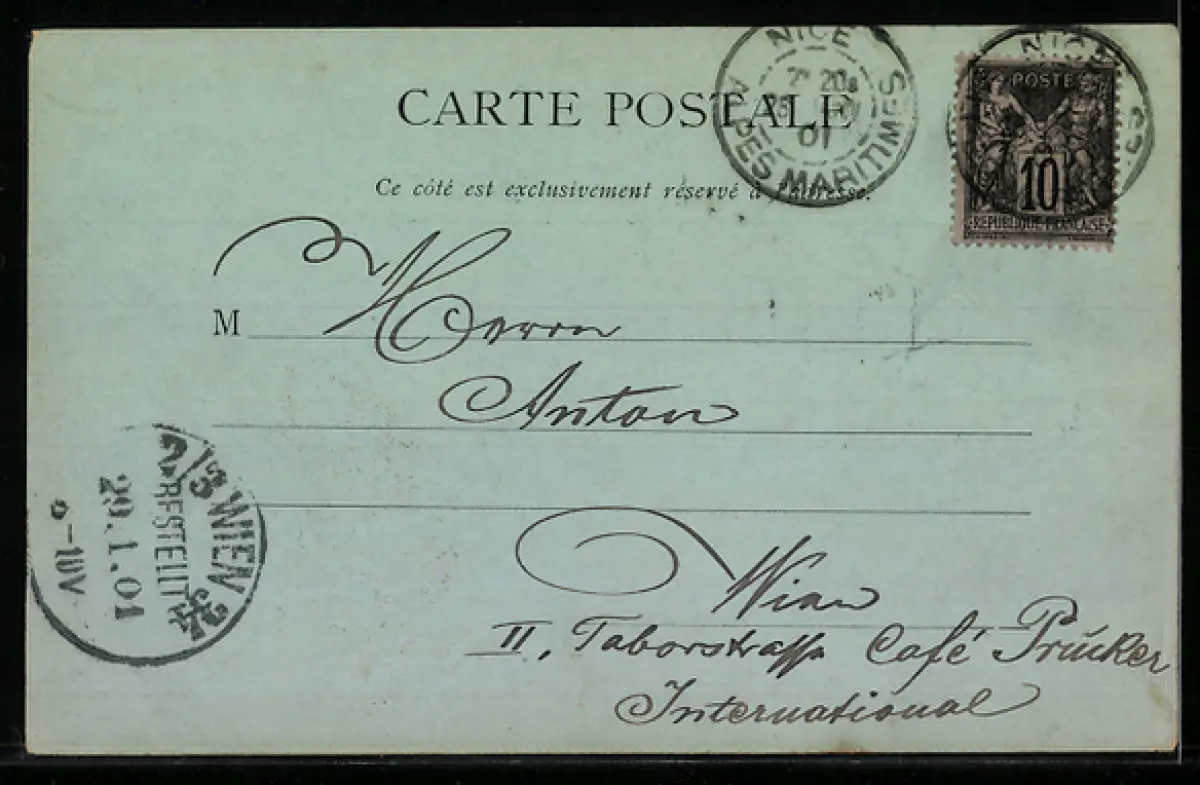 CARTE POSTALE
Ce côté est exclusivement réservé à l'adresse.
NICE
2ᴱ 20s
01
ALPES MARITIMES
NICE
POSTES
10
REPUBLIQUE FRANÇAISE
M Herrn
Anton
Wien
II, Taborstrasse Café Prücker
International
WIEN
BESTELLT
29.1.01